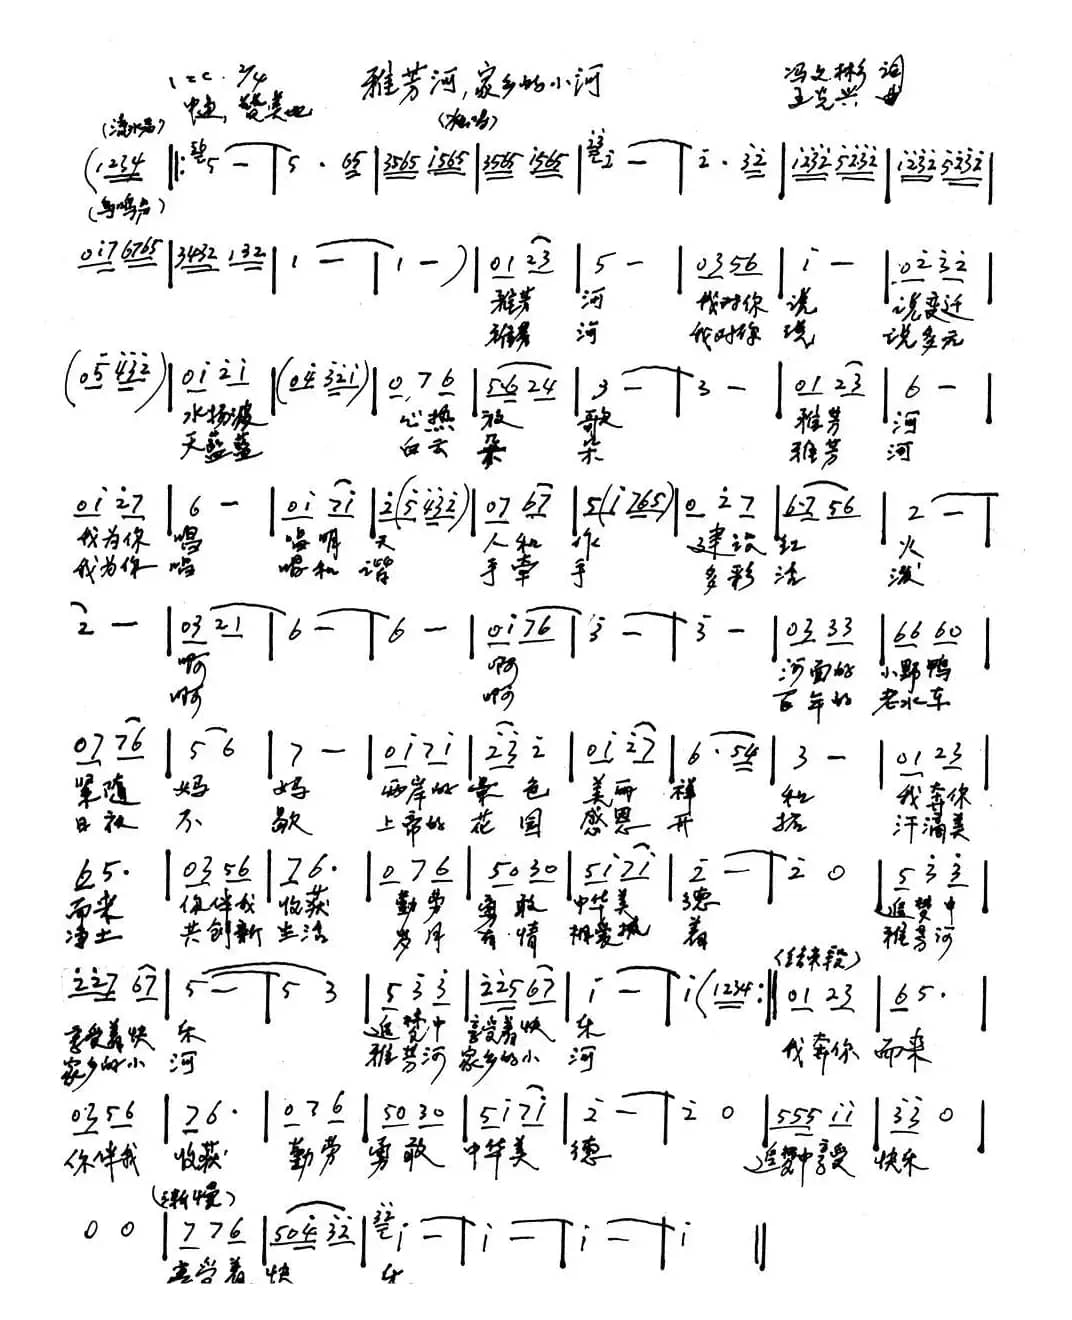 1=C 2/4 雅芳河,家乡的小河 冯文彬 词
中速,赞美地 王克兴 曲
(流水声) (独唱)
(1234 |: 5 — | 5 · 65 | 3565 i565 | 3565 i565 | i — | 2 · 32 | 1232 5232 | 1232 5232 |
(鸟鸣声)
0i7 6765 | 3432 132 | 1 — | 1 — ) | 01 23 | 5 — | 03 56 | i — | 02 32 |
雅芳 河 我对你 说 说变迁
雅芳 河 我对你 说 说多元
(05 432) | 0i 2i | (04 32i) | 0 7 6 | 56 24 | 3 — | 3 — | 01 23 | 6 — |
水扬波 心热 放 歌 雅芳 河
天蓝蓝 白云 朵 朵 雅芳 河
0i 27 | 6 — | 0i 7i | 2 (5 432) | 07 67 | 5 (i 765) | 0 2 7 | 67 56 | 2 — |
我为你 唱 唱明 天 人和 作 建设 红 火
我为你 唱 唱和 谐 手牵 手 多彩 活 泼
2 — | 03 21 | 6 — | 6 — | 0i 76 | 3 — | 3 — | 03 33 | 66 60 |
啊 啊 河面的 小野鸭
啊 啊 百年的 老水车
07 76 | 5 6 | 7 — | 0i 7i | 23 2 | 0i 27 | 6 · 54 | 3 — | 01 23 |
紧随 妈 妈 两岸的 景 色 美而 祥 和 我奔你
日夜 不 歇 上帝的 花 园 感恩 开 拓
65 · | 03 56 | 76 · | 0 7 6 | 50 30 | 5i 7i | 2 — | 2 0 | 5 3 3 |
而来 你伴我 收获 勤劳 勇敢 中华美 德 追梦中
净土 共创新 生活 岁月 有情 相爱 着 雅芳河
(结束段)
227 67 | 5 — | 5 3 | 5 3 3 | 225 67 | i — | i (1234 :| 01 23 | 65 · |
享受着快 乐 追梦中 享受着快 乐 我奔你 而来
家乡的小 河 雅芳河 家乡的小 河
03 56 | 76 · | 0 7 6 | 50 30 | 5i 7i | 2 — | 2 0 | 555 ii | 33 0 |
你伴我 收获 勤劳 勇敢 中华美 德 追梦中享受 快乐
(渐慢)
0 0 | 7 7 6 | 504 32 | i — | i — | i — | i ||
享受着 快 乐